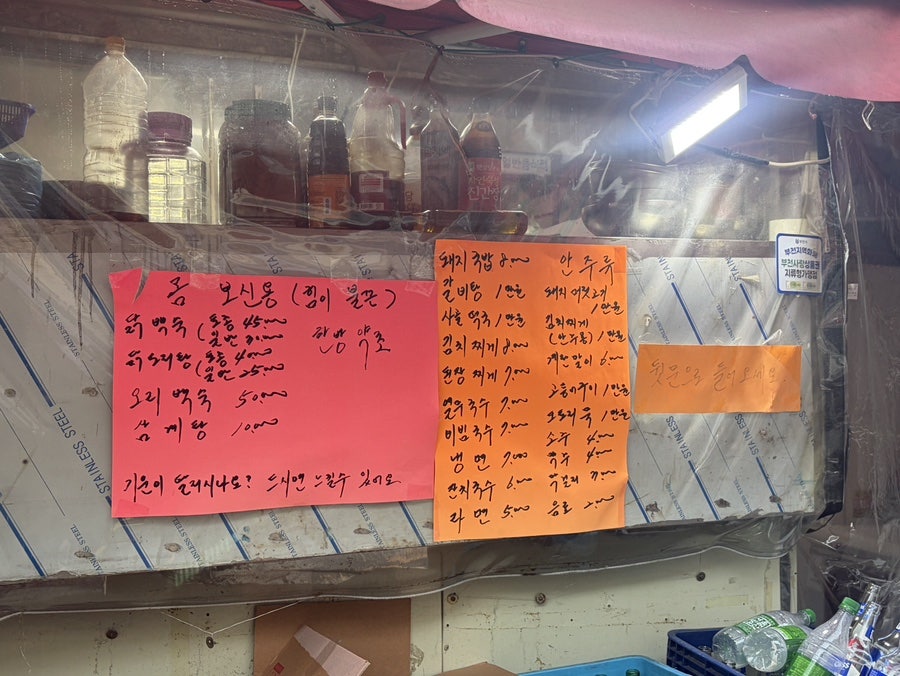 몸 보신용 (힘이 불끈)
닭 백숙 (토종 45,000
(일반 30,000
한방 약초
닭도리탕 (토종 40,000
(일반 25,000
오리 백숙 50,000
삼계탕 10,000
기운이 딸리시나요? 드시면 느낄수 있어요
돼지국밥 8,000
갈비탕 1만원
사골떡국 1만원
김치찌개 8,000
된장찌개 7,000
열무국수 7,000
비빔국수 7,000
냉면 7,000
잔치국수 6,000
라면 5,000
안주류
돼지머릿고기
1만원
김치찌개
(안주용) 1만원
계란말이 6,000
고등어구이 1만원
1만원
소주 4,000
맥주 4,000
막걸리
음료 2,000
뒷문으로 들어오세요.
부천사랑상품권
STAINLESS STEEL
STAINLESS STEEL
STAINLESS STEEL
STAINLESS STEEL
진간장